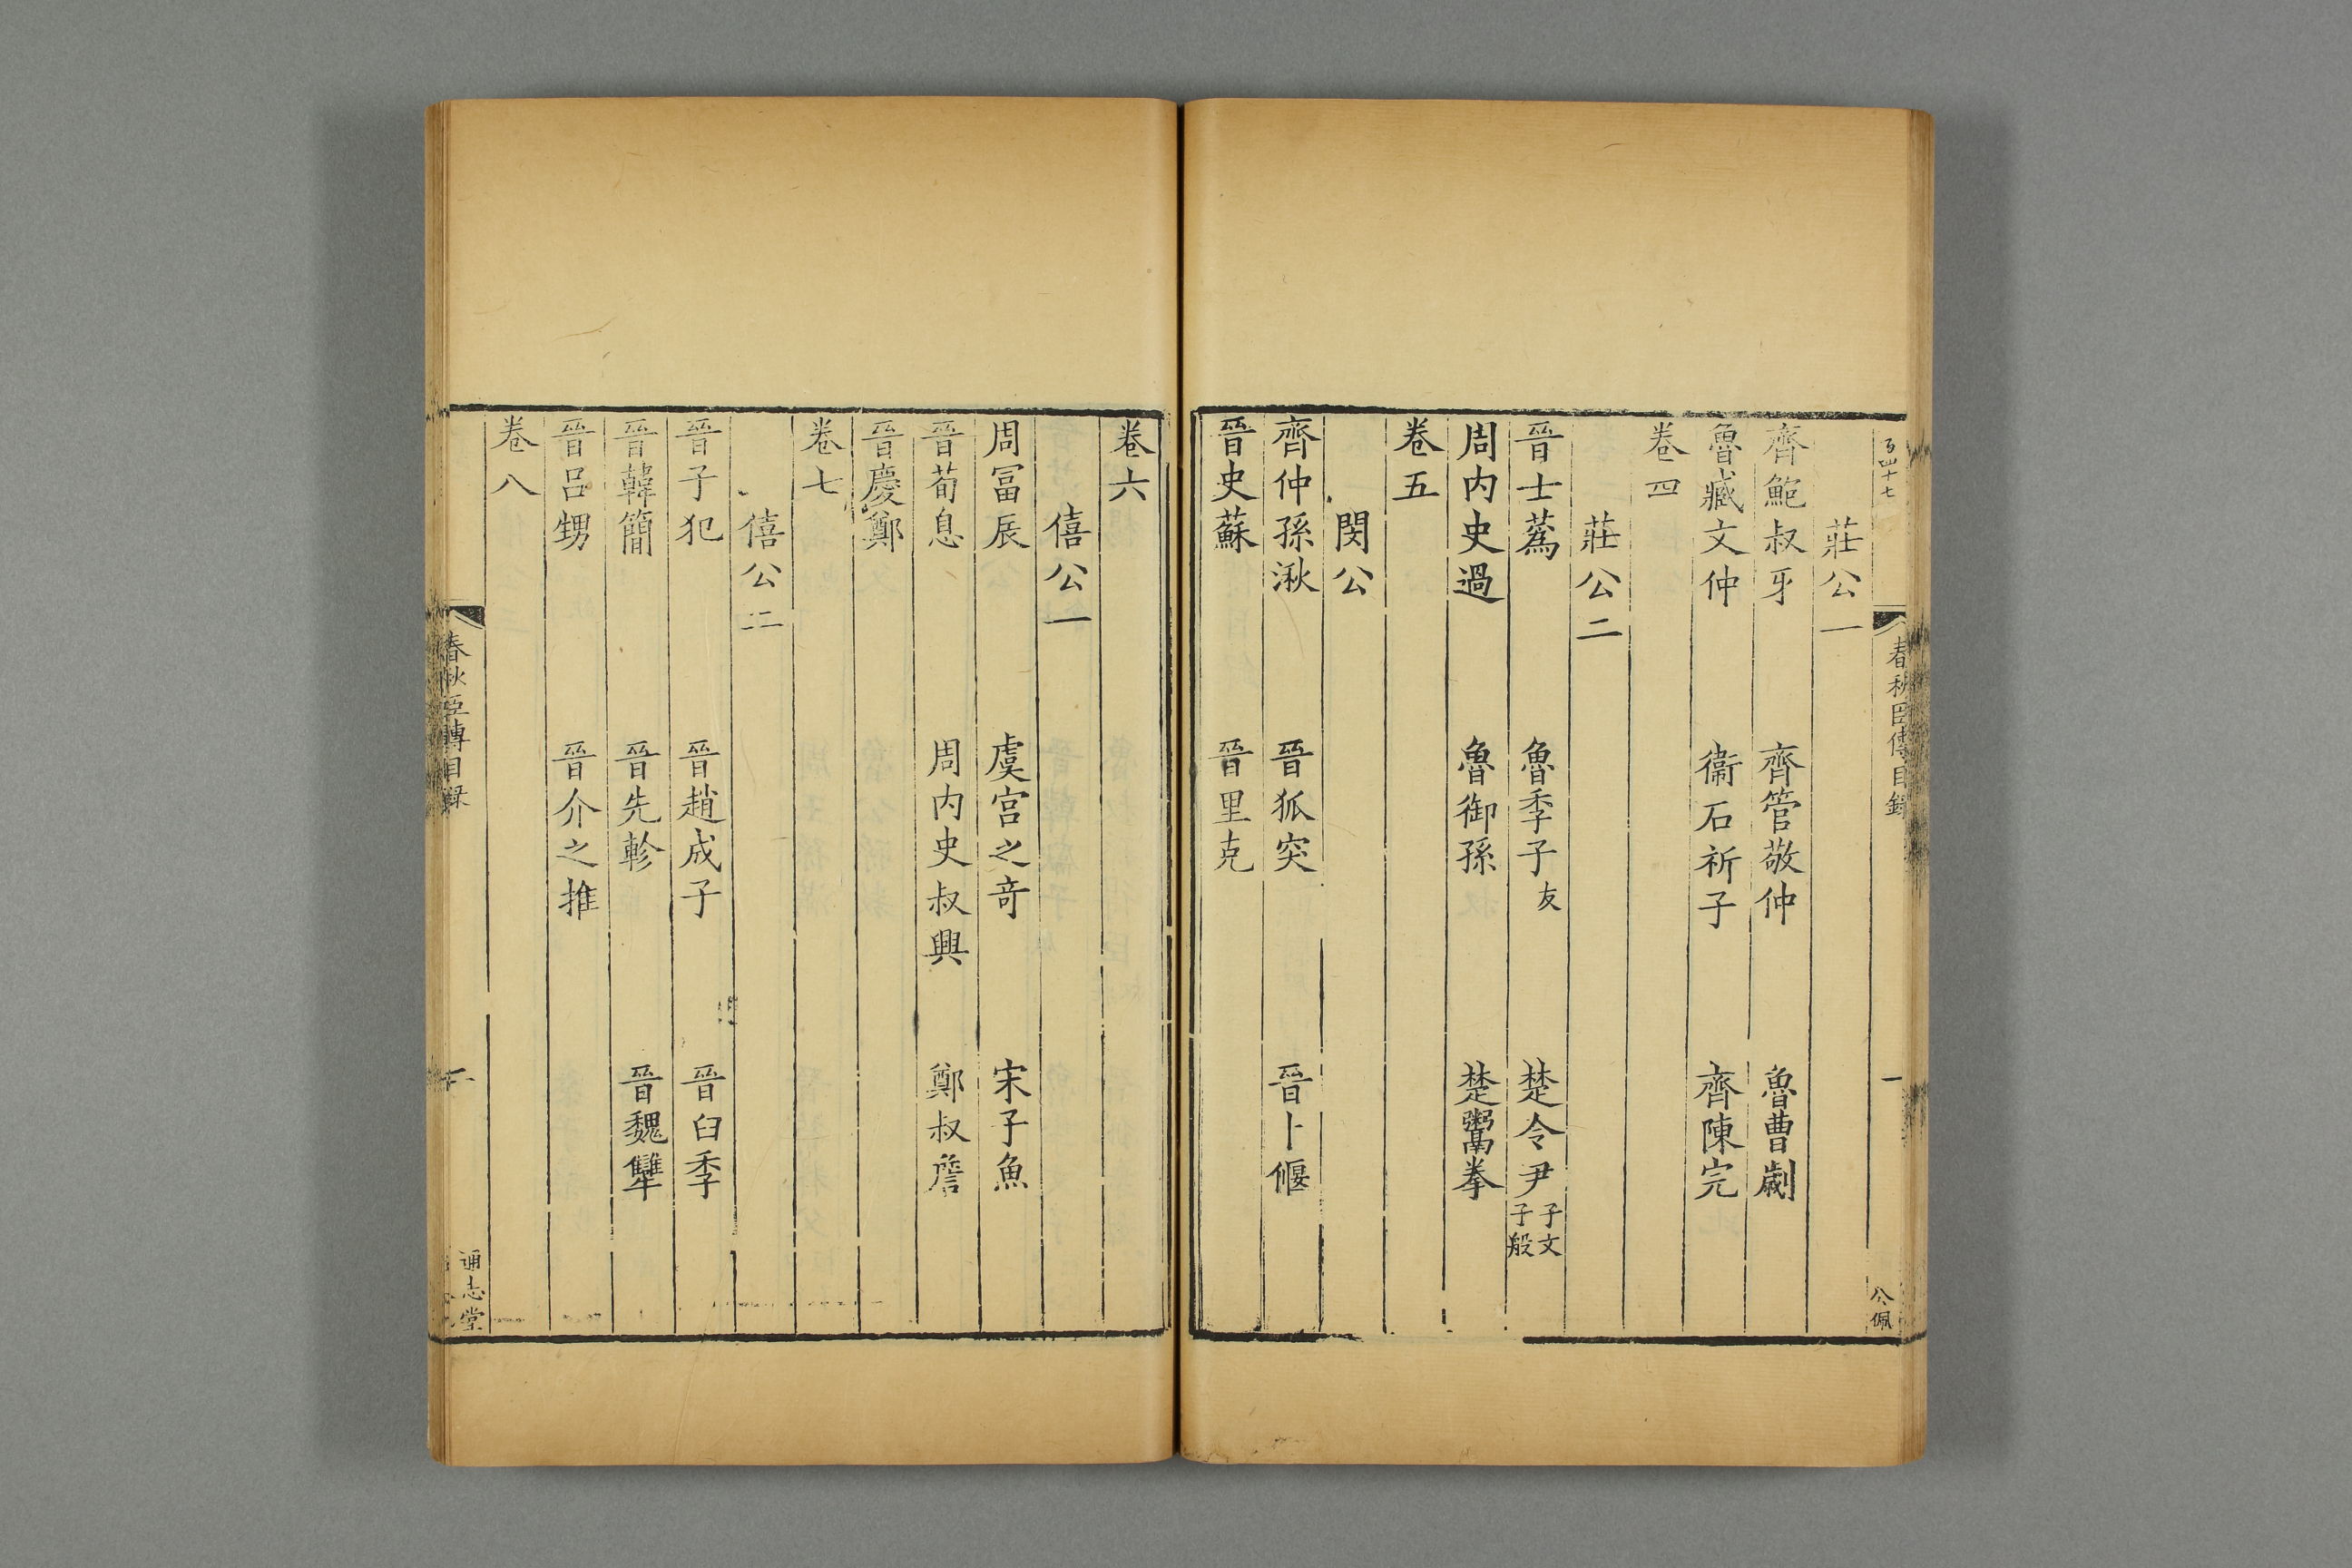 莊公一
齊鮑叔牙 齊管敬仲 魯曹劌
魯臧文仲 衞石祈子 齊陳完
卷四
莊公二
晉士蔿 魯季子友 楚令尹子文子般
周內史過 魯御孫 楚鬻拳
卷五
閔公
齊仲孫湫 晉狐突 晉卜偃
晉史蘇 晉里克
春秋臣傳目錄
一
公佩
卷六
僖公一
周冨辰 虞宮之竒 宋子魚
晉荀息 周內史叔興 鄭叔詹
晉慶鄭
卷七
僖公二
晉子犯 晉趙成子 晉臼季
晉韓簡 晉先軫 晉魏犨
晉呂甥 晉介之推
卷八
春秋臣傳目錄
通志堂